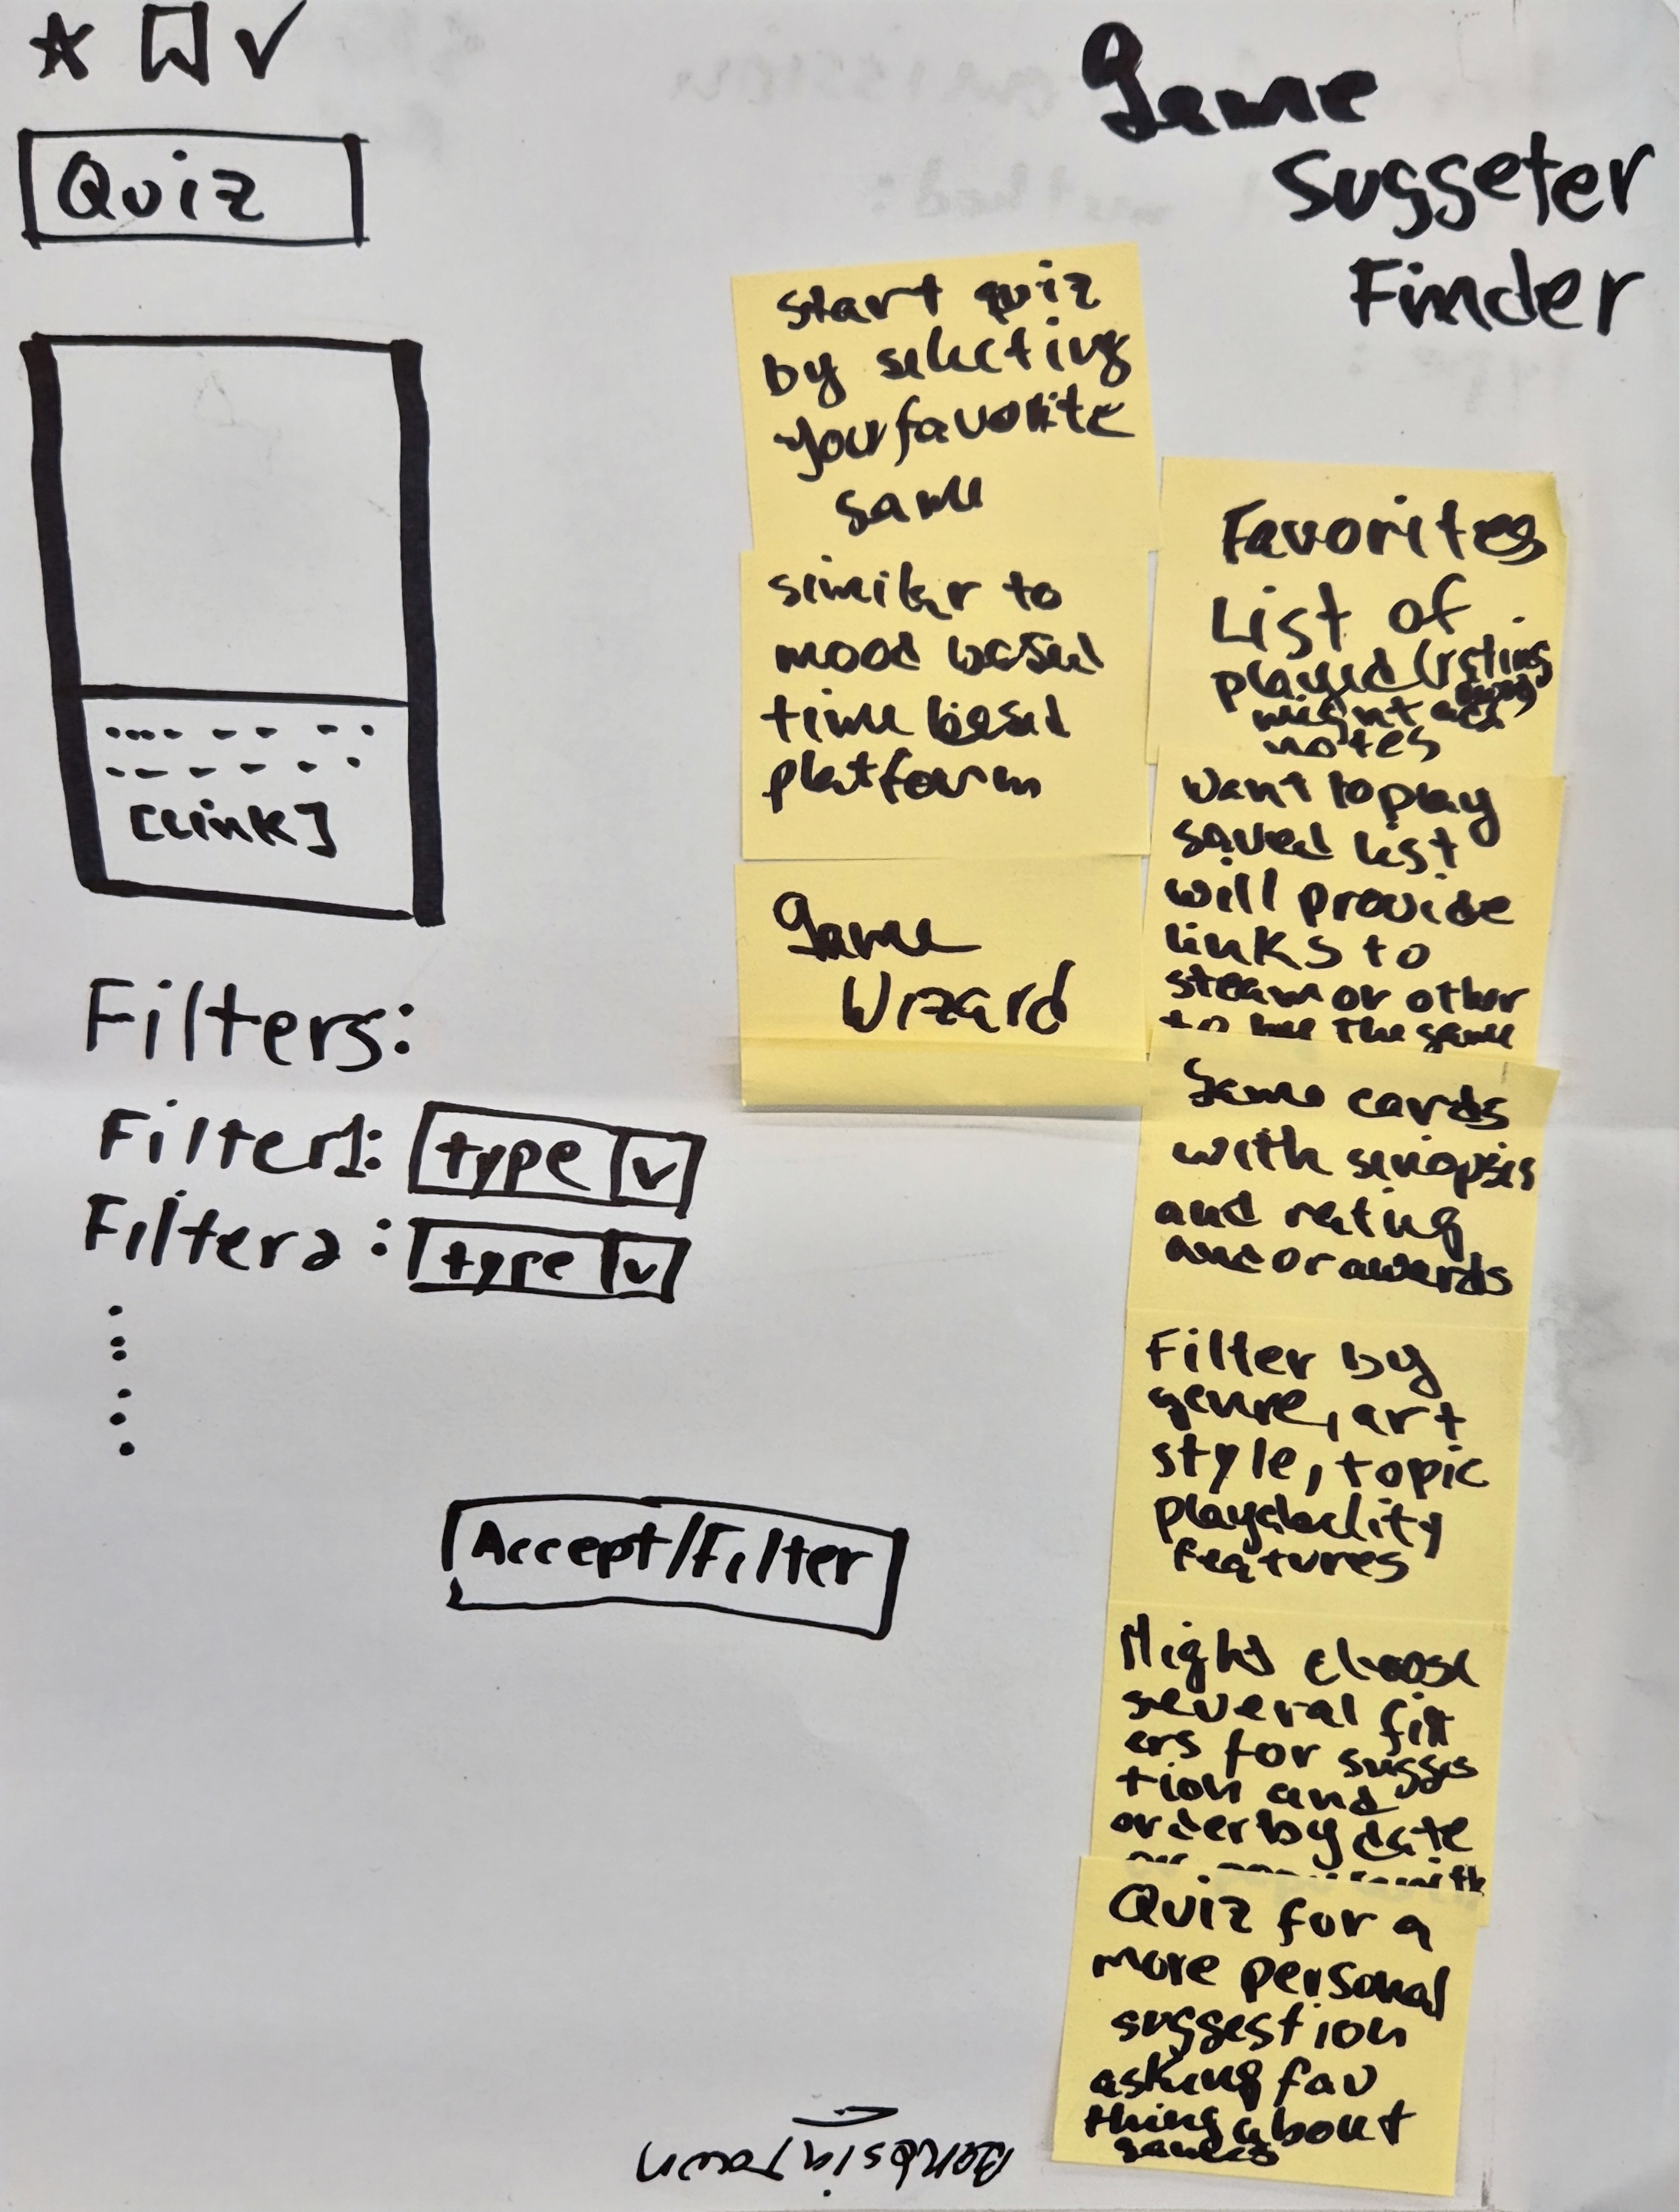 Game
suggseter
Finder
Quiz
[Link]
Filters:
Filter1: type v
Filter2: type v
Accept/Filter
start quiz
by selecting
your favorite
game
similar to
mood based
time based
platform
Game
Wizard
Favorites
List of
played listing
might add
notes
want to play
saved list
will provide
links to
steam or other
to buy the game
Game cards
with sinopsis
and rating
and or awards
Filter by
genre, art
style, topic
playability
features
Might choose
several filt
ers for sugges
tion and
order by date
Quiz for a
more personal
suggestion
asking fav
thing about
games